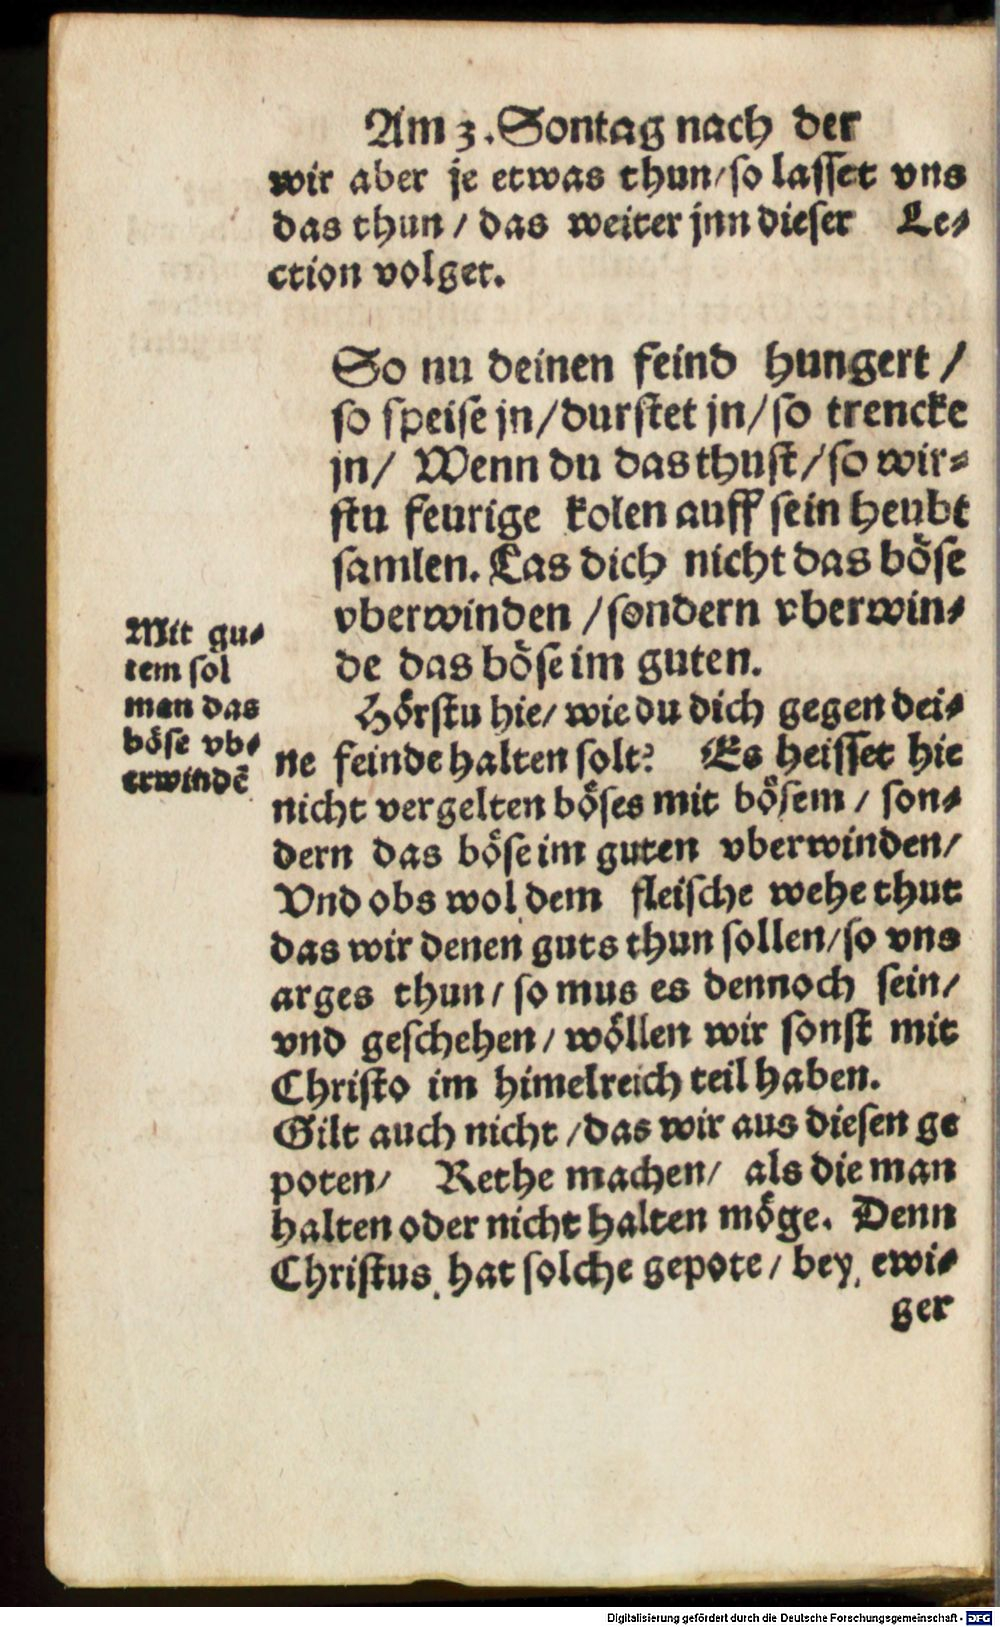 Am 3. Sontag nach der
wir aber je etwas thun/so lasset vns
das thun / das weiter jnn dieser Le-
ction volget.
So nu deinen feind hungert /
so speise jn/durstet jn/so trencke
jn/ Wenn du das thust/so wir-
stu feurige kolen auff sein heubt
samlen. Las dich nicht das böse
vberwinden /sondern vberwin-
de das böse im guten.
Mit gu-
tem sol
man das
böse vb-
erwindē
Hörstu hie/ wie du dich gegen dei-
ne feinde halten solt? Es heisset hie
nicht vergelten böses mit bösem / son-
dern das böse im guten vberwinden/
Vnd obs wol dem fleische wehe thut
das wir denen guts thun sollen/so vns
arges thun/ so mus es dennoch sein/
vnd geschehen/ wöllen wir sonst mit
Christo im himelreich teil haben.
Gilt auch nicht /das wir aus diesen ge
poten/ Rethe machen/ als die man
halten oder nicht halten möge. Denn
Christus hat solche gepote/ bey ewi-
ger
Digitalisierung gefördert durch die Deutsche Forschungsgemeinschaft - DFG